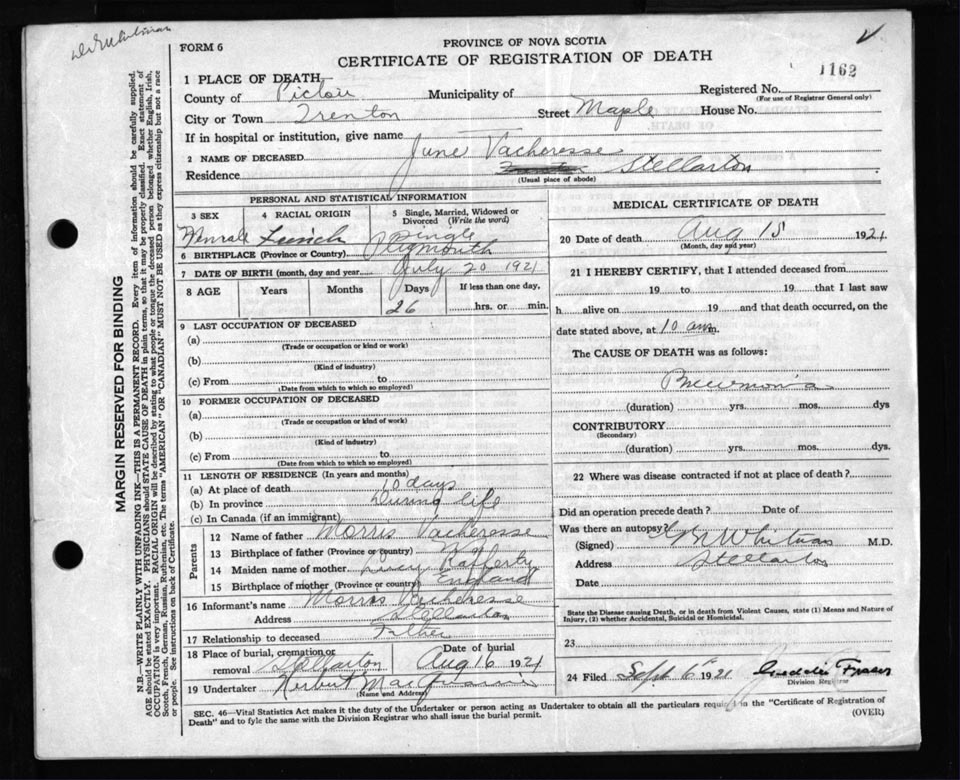 FORM 6
PROVINCE OF NOVA SCOTIA
CERTIFICATE OF REGISTRATION OF DEATH
1162
1 PLACE OF DEATH
County of Pictou Municipality of
Registered No.
(For use of Registrar General only)
City or Town Trenton Street Maple House No.
If in hospital or institution, give name
2 NAME OF DECEASED June Vacheresse
Residence Stellarton
(Usual place of abode)
MARGIN RESERVED FOR BINDING
N.B.—WRITE PLAINLY WITH UNFADING INK—THIS IS A PERMANENT RECORD. Every item of information should be carefully supplied.
AGE should be stated EXACTLY. PHYSICIANS should STATE CAUSE OF DEATH in plain terms, so that it may be properly classified. Exact statement of
OCCUPATION is very important. RACIAL ORIGIN will be described by stating to what people or tongue the deceased person belonged whether English, Irish,
Scotch, French, German, Russian, Ruthenian, etc. The terms "AMERICAN" OR "CANADIAN" MUST NOT BE USED as they express citizenship but not a race
or people. See instructions on back of Certificate.
PERSONAL AND STATISTICAL INFORMATION
3 SEX 4 RACIAL ORIGIN 5 Single, Married, Widowed or
Divorced (Write the word)
Female Single
6 BIRTHPLACE (Province or Country) Plymouth
7 DATE OF BIRTH (month, day and year) July 20 1921
8 AGE Years Months Days If less than one day,
26 hrs. or min.
9 LAST OCCUPATION OF DECEASED
(a)
(Trade or occupation or kind or work)
(b)
(Kind of industry)
(c) From to
(Date from which to which so employed)
10 FORMER OCCUPATION OF DECEASED
(a)
(Trade or occupation or kind of work)
(b)
(Kind of industry)
(c) From to
(Date from which to which so employed)
11 LENGTH OF RESIDENCE (In years and months)
(a) At place of death 10 days
(b) In province During life
(c) In Canada (if an immigrant)
Parents
12 Name of father Morris Vacheresse
13 Birthplace of father (Province or country)
14 Maiden name of mother Rafferty
15 Birthplace of mother (Province or country) England
16 Informant's name Morris Vacheresse
Address Stellarton
17 Relationship to deceased Father
18 Place of burial, cremation or
removal Stellarton
Date of burial
Aug 16 1921
19 Undertaker Herbert
(Name and Address)
MEDICAL CERTIFICATE OF DEATH
20 Date of death Aug 15 1921
(Month, day and year)
21 I HEREBY CERTIFY, that I attended deceased from
19 to 19 that I last saw
h alive on 19 and that death occurred, on the
date stated above, at 10 am.
The CAUSE OF DEATH was as follows:
Pneumonia
(duration) yrs. mos. dys
CONTRIBUTORY
(Secondary)
(duration) yrs. mos. dys
22 Where was disease contracted if not at place of death?
Did an operation precede death? Date of
Was there an autopsy?
(Signed) Whitman M.D.
Address Stellarton
Date
State the Disease causing Death, or in death from Violent Causes, state (1) Means and Nature of
Injury, (2) whether Accidental, Suicidal or Homicidal.
23
24 Filed Sept 6th 1921 Fraser
Division Registrar
SEC. 46—Vital Statistics Act makes it the duty of the Undertaker or person acting as Undertaker to obtain all the particulars required in the "Certificate of Registration of
Death" and to fyle the same with the Division Registrar who shall issue the burial permit.
(OVER)